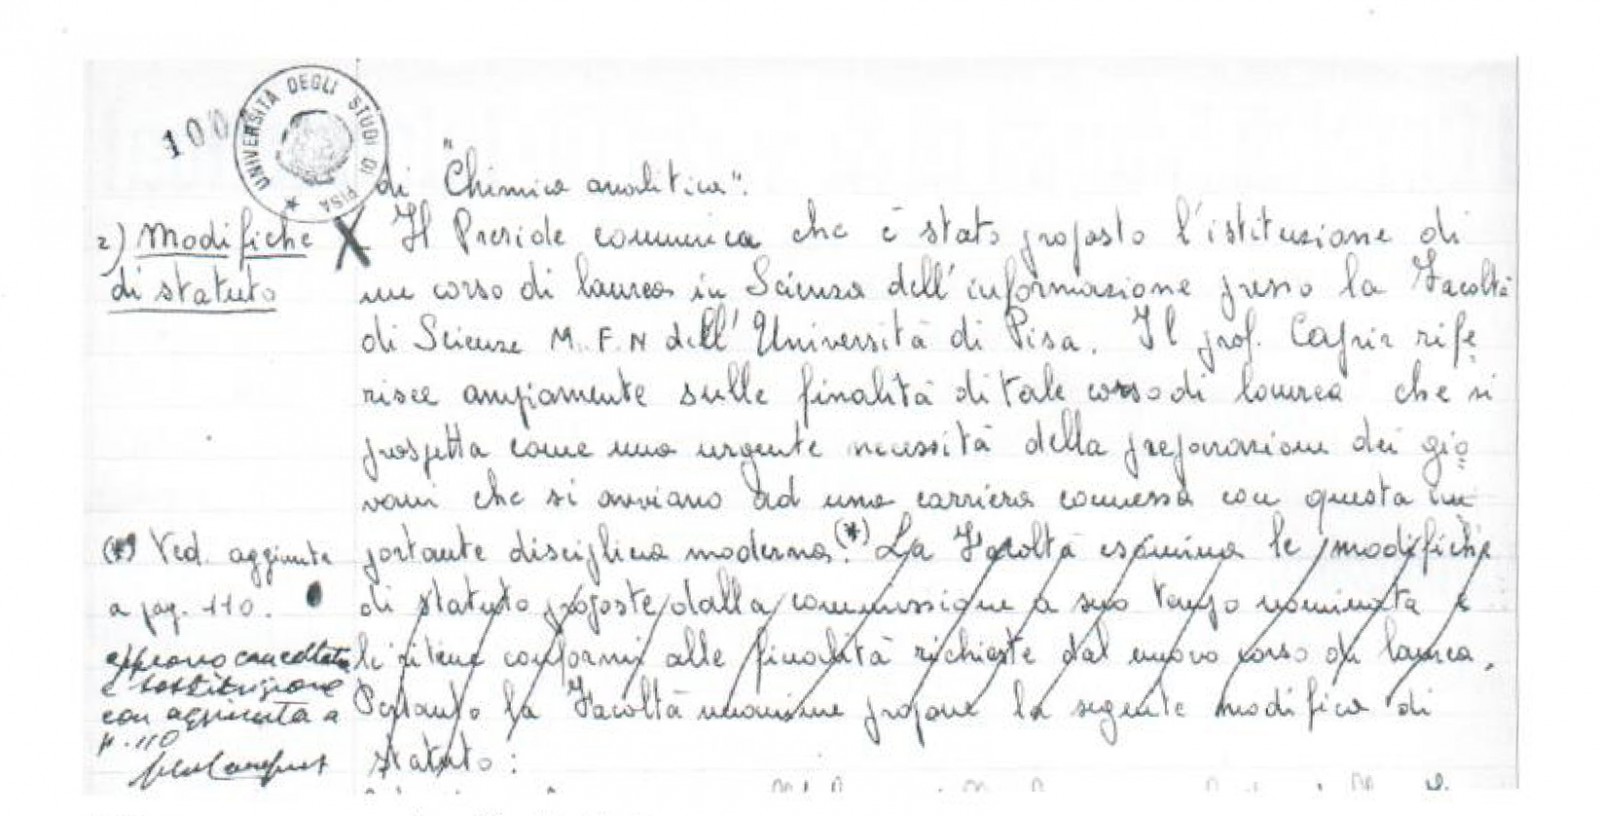 100
UNIVERSITÀ DEGLI STUDI DI PISA
di "Chimica analitica".
2) Modifiche
di statuto
Il Preside comunica che è stato proposto l'istituzione di
un corso di laurea in Scienza dell'informazione presso la Facoltà
di Scienze M. F. N dell'Università di Pisa. Il prof. Capriz rife
risce ampiamente sulle finalità di tale corso di laurea che si
prospetta come una urgente necessità della preparazione dei gio
vani che si avviano ad una carriera connessa con questa im
portante disciplina moderna.(*) La Facoltà esamina le modifiche
di statuto proposte dalla commissione a suo tempo nominata e
le ritiene conformi alle finalità richieste dal nuovo corso di laurea.
Pertanto la Facoltà unanime propone la seguente modifica di
statuto:
(*) Ved. aggiunta
a pag. 110.
approvo cancellatura
e sostituzione
con aggiunta a
p. 110